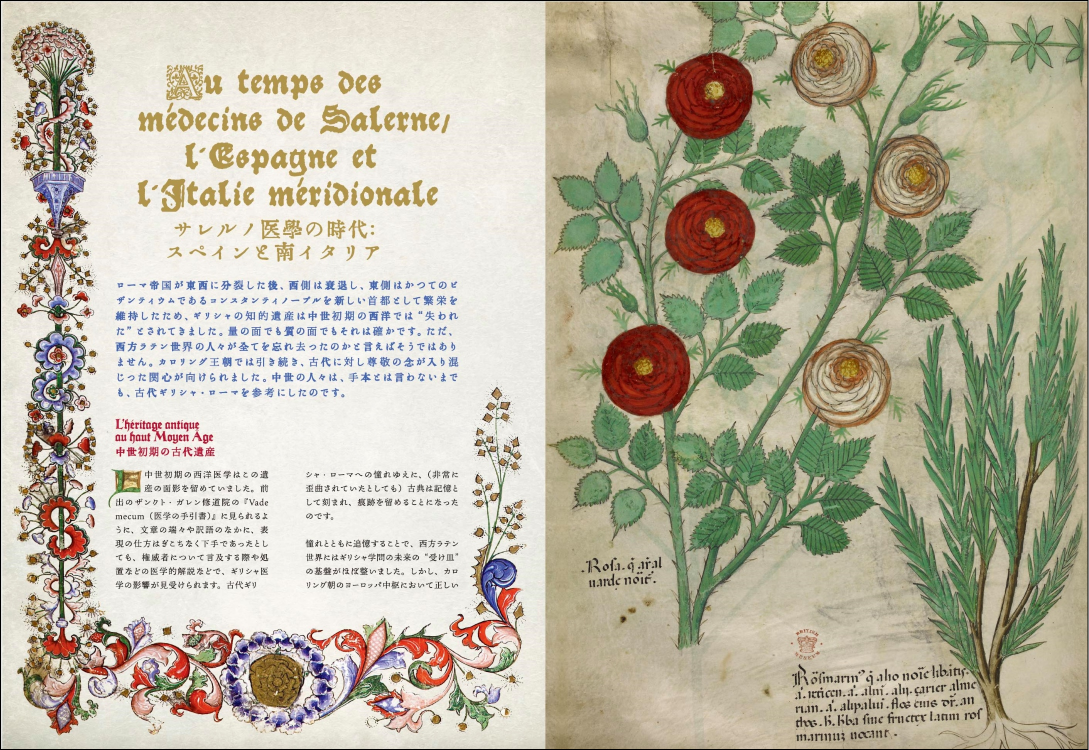 Au temps des
médecins de Salerne,
l'Espagne et
l'Italie méridionale
サレルノ医學の時代:
スペインと南イタリア
ローマ帝国が東西に分裂した後、西側は衰退し、東側はかつてのビ
ザンティウムであるコンスタンティノープルを新しい首都として繁栄を
維持したため、ギリシャの知的遺産は中世初期の西洋では“失われ
た”とされてきました。量の面でも質の面でもそれは確かです。ただ、
西方ラテン世界の人々が全てを忘れ去ったのかと言えばそうではあり
ません。カロリング王朝では引き続き、古代に対し尊敬の念が入り混
じった関心が向けられました。中世の人々は、手本とは言わないまで
も、古代ギリシャ・ローマを参考にしたのです。
L'héritage antique
au haut Moyen Age
中世初期の古代遺産
中世初期の西洋医学はこの遺
産の面影を留めていました。前
出のザンクト・ガレン修道院の『Vade
mecum（医学の手引書）』に見られるよ
うに、文章の端々や訳語のなかに、表
現の仕方はぎこちなく下手であったとし
ても、権威者について言及する際や処
置などの医学的解説などで、ギリシャ医
学の影響が見受けられます。古代ギリ
シャ・ローマへの憧れゆえに、（非常に
歪曲されていたとしても）古典は記憶と
して刻まれ、痕跡を留めることになった
のです。
憧れとともに追憶することで、西方ラテン
世界にはギリシャ学問の未来の“受け皿”
の基盤がほぼ整いました。しかし、カロ
リング朝のヨーロッパ中枢において正しい
Rosa. q̃ ar̃al
uarde noīt.